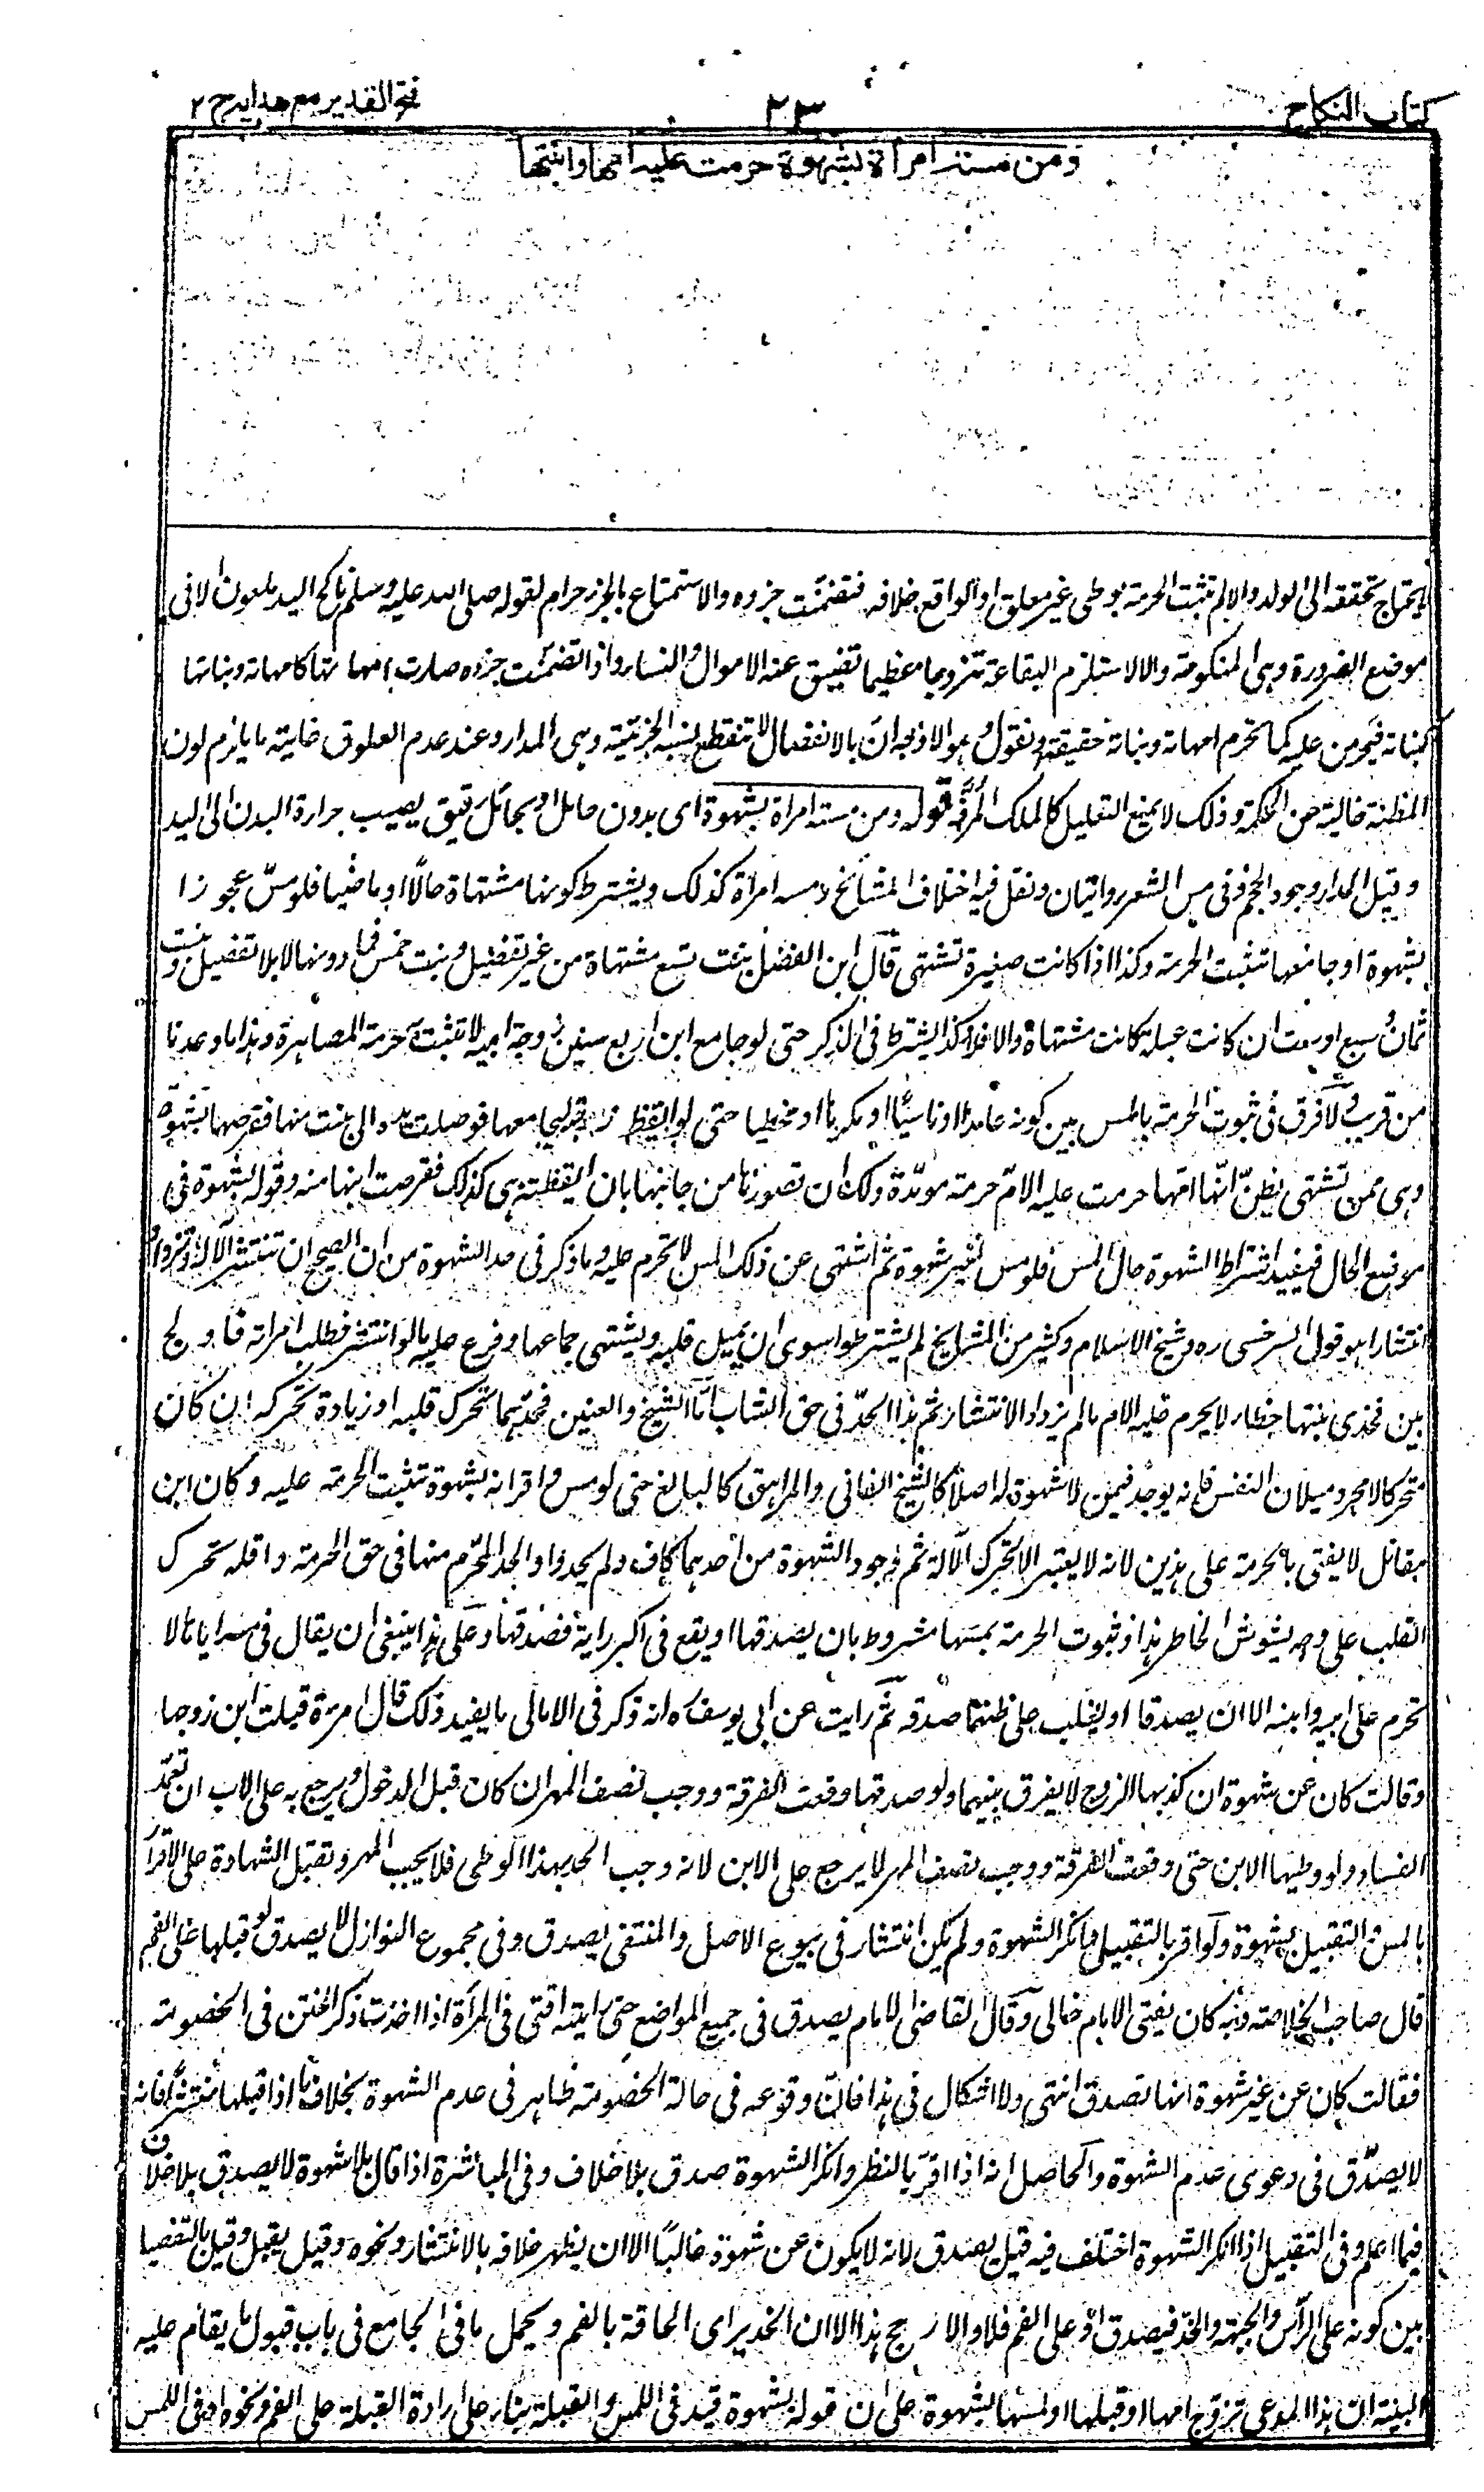 كتاب النكاح
٢٣
فتح القدير مع هداية ج ٢
ومن مسته امرأة بشهوة حرمت عليه امها وابنتها
يحتاج تحققه الى الولد والا لم تثبت الحرمة بوطى غير معلق والواقع خلافه فتضمنت جزوه والاستمتاع بالجزء حرام لقوله صلى الله عليه وسلم ناكح اليد ملعون الا فى
موضع الضرورة وهى المنكوحة والا لاستلزم البقاء عة تزوجها معظيما تضيق عنه الاموال والنساء واذا تضمنت جزءه صارت امهاتها كامهاته وبناتها
كبناته فيحرمن عليه كما تحرم امهاته وبناته حقيقة ونقول وهو الاوجه ان بالانفصال لا تنقطع نسبة الجزئية وهى المدار وعند عدم العلوق غايته ما يلزم كون
المظنة خالية عن الحكمة وذلك لا يمنع التعليل كالملك المرفه قوله ومن مسته امراة بشهوة اى بدون حائل او بحائل رقيق يصيب حرارة البدن الى اليد
وقيل المدار وجود الحجم وفى مس الشعر روايتان ونقل فيه اختلاف المشائخ ومسه امرأة كذلك ويشترط كونها مشتهاة حالًا او ماضيا فلو مسّ عجوزا
بشهوة او جامعها تثبت الحرمة وكذا اذا كانت صغيرة تشتهى قال ابن الفضل بنت تسع مشتهاة من غير تفصيل وبنت خمس فما دونها لا بلا تفصيل وبنت
ثمان او سبع او ست ان كانت عبلة كانت مشتهاة والا فلا وكذا يشترط فى الذكر حتى لو جامع ابن اربع سنين زوجة ابيه لا تثبت حرمة المصاهرة وهذا ما وعدنا
من قريب ولا فرق فى ثبوت الحرمة بالمس بين كونه عامدا او ناسيًا او مكرها او مخطيا حتى لو ايقظ زوجته ليجامعها فوصلت يده الى بنت منها فقرصها بشهوة
وهى ممن تشتهى يظن انّها امّها حرمت عليه الامّ حرمة موبّدة ولك ان تصورها من جانبها بان ايقظته هى كذلك فقرصت ابنها منه وقوله بشهوة فى
موضع الحال فيفيد اشتراط الشهوة حال المس فلو مس بغير شهوة ثم اشتهى عن ذلك المس لا تحرم عليه وما ذكر فى حد الشهوة من ان الصحيح ان تنتشر الآلة او تزداد
انتشارا هو قول السرخسى ره وشيخ الاسلام وكثير من المشايخ لم يشترطوا سوى ان يميل قلبه ويشتهى جماعها وفرع عليه ما لو انتشر فطلب امراته فاولج
بين فخذى بنتها خطاء لا يحرم عليه الام ما لم يزداد الانتشار ثم هذا الحدّ فى حق الشاب امّا الشيخ والعنين فحدّهما تحرك قلبه او زيادة تحركه ان كان
متحركا لا مجرد ميلان النفس فانه يوجد فيمن لا شهوة له اصلًا كالشيخ الفانى والمراهق كالبالغ حتى لو مس واقر انه بشهوة تثبت الحرمة عليه وكان ابن
مقاتل لا يفتى بالحرمة على هذين لانه لا يعتبر الا تحرك الآلة ثم وجود الشهوة من احدهما كاف ولم يحدوا الحد المحرّم منها فى حق الحرمة واقله تحرك
القلب على وجه يشوش الخاطر هذا وثبوت الحرمة بمسها مشروط بان يصدقها او يقع فى اكبر رايه صدقها وعلى هذا ينبغى ان يقال فى مسه اياها لا
تحرم على ابيه وابنه الا ان يصدقا او يغلب على ظنهما صدقه ثم رايت عن ابى يوسف ره انه ذكر فى الامالى ما يفيد ذلك قال امرأة قبلت ابن زوجها
وقالت كان عن شهوة ان كذبها الزوج لا يفرق بينهما ولو صدقها وقعت الفرقة ووجب نصف المهر ان كان قبل الدخول ويرجع به على الاب ان تعمّد
الفساد ولو وطيها الابن حتى وقعت الفرقة ووجب نصف المهر لا يرجع على الابن لانه وجب الحد بهذا الوطى فلا يجب المهر وتقبل الشهادة على الاقرار
بالمس والتقبيل بشهوة ولو اقر بالتقبيل وانكر الشهوة ولم يكن انتشار فى بيوع الاصل والمنتقى يصدق وفى مجموع النوازل لا يصدق لو قبلها على الفم
قال صاحب الخلاصة وبه كان يفتى الامام خالى وقال القاضى الامام يصدق فى جميع المواضع حتى رايته افتى فى المرأة اذا اخذت ذكر الختن فى الخصومة
فقالت كان عن غير شهوة انها تصدق انتهى ولا اشكال فى هذا فان وقوعه فى حالة الخصومة ظاهر فى عدم الشهوة بخلاف ما اذا قبلها منتشرًا فانه
لا يصدّق فى دعوى عدم الشهوة والحاصل انه اذا اقرّ بالنظر وانكر الشهوة صدق بلا خلاف وفى المباشرة اذا قال بلا شهوة لا يصدق بلا خلاف
فيما اعلم وفى التقبيل اذا انكر الشهوة اختلف فيه قيل يصدق لانه لا يكون عن شهوة غالبًا الا ان يظهر خلافه بالانتشار ونحوه وقيل يقبل وقيل بالتفصيل
بين كونه على الرأس والجبهة والخد فيصدق او على الفم فلا والارجح هذا الا ان الخد يراى الحاقه بالفم ويحمل ما فى الجامع فى باب قبول ما يقام عليه
البينة ان هذا المدعى تزوج امها او قبلها او لمسها بشهوة على ان قوله بشهوة قيد فى اللمس والقبلة بناء على ارادة القبلة على الفم ونحوه او فى اللمس